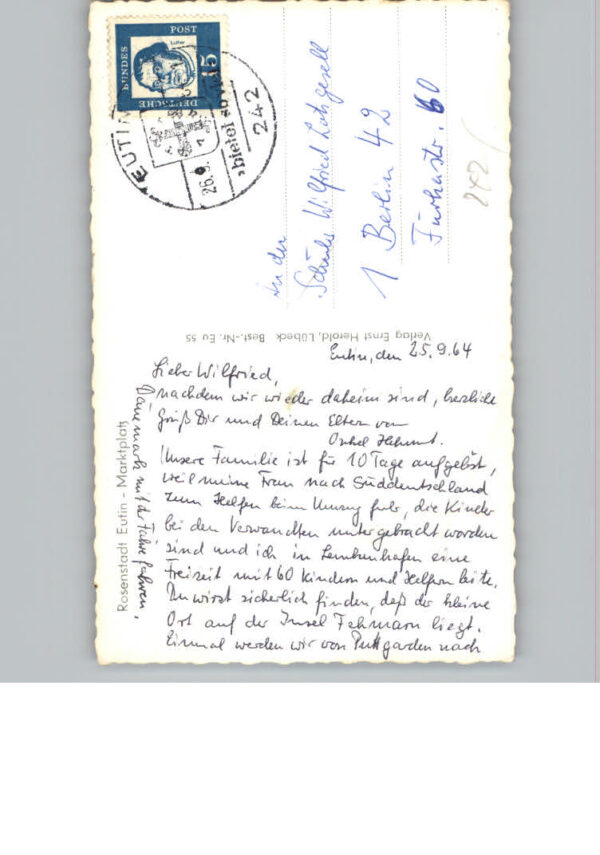 DEUTSCHE
BUNDES
POST
15
Luther
EUTIN
26.9.
bietet
242
An den
Schüler Wilfried
1 Berlin 42
60
242
Verlag Ernst Herold, Lübeck Best.-Nr. Eu 55
Rosenstadt Eutin - Marktplatz
Eutin, den 25.9.64
Lieber Wilfried,
nachdem wir wieder daheim sind, herzliche
Grüß Dir und Deinen Eltern von
Onkel Helmut.
Unsere Familie ist für 10 Tage aufgelöst,
weil meine Frau nach Süddeutschland
zum Helfen beim Umzug fuhr, die Kinder
bei den Verwandten untergebracht worden
sind und ich in Lemkenhafen eine
Freizeit mit 60 Kindern und Helfern leite.
Du wirst sicherlich finden, daß der kleine
Ort auf der Insel Fehmarn liegt.
Einmal werden wir von Puttgarden nach
Dänemark mit der Fähre fahren.